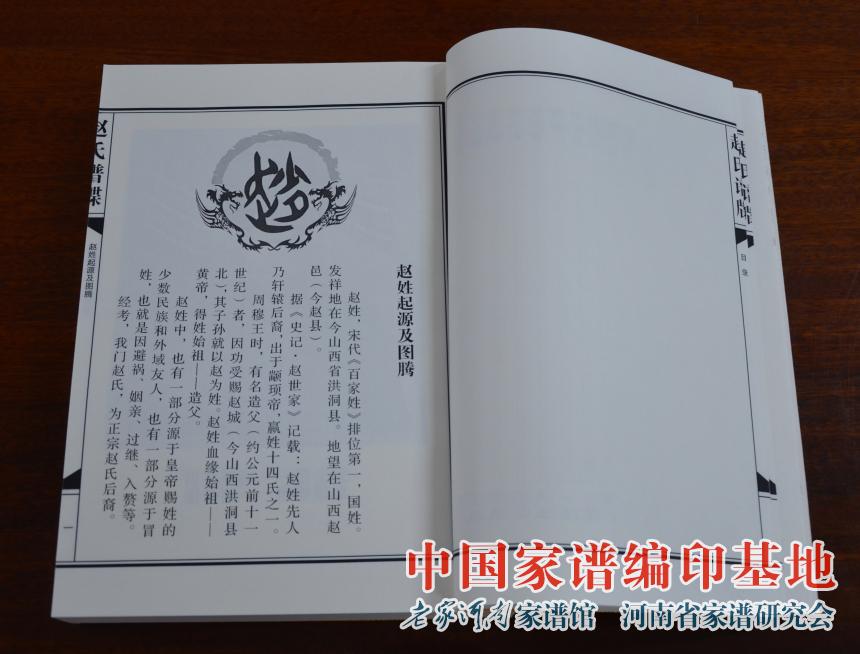 赵氏谱牒
目录
赵姓起源及图腾
赵姓，宋代《百家姓》排位第一，国姓。
发祥地在今山西省洪洞县。地望在山西赵
邑（今赵县）。
据《史记·赵世家》记载：赵姓先人
乃轩辕后裔，出于颛顼帝，嬴姓十四氏之一。
周穆王时，有名造父（约公元前十一
世纪）者，因功受赐赵城（今山西洪洞县
北），其子孙就以赵为姓。赵姓血缘始祖——
黄帝，得姓始祖——造父。
赵姓中，也有一部分源于皇帝赐姓的
少数民族和外域友人，也有一部分源于冒
姓，也就是因避祸、姻亲、过继、入赘等。
经考，我门赵氏，为正宗赵氏后裔。
赵氏谱牒
赵姓起源及图腾
一
中国家谱编印基地
老家河南家谱馆 河南省家谱研究会